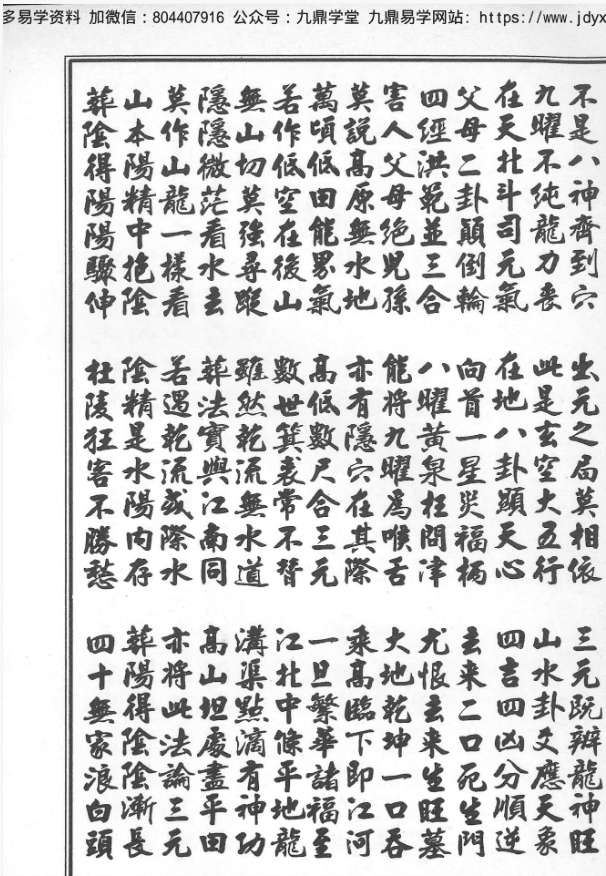 多易学资料 加微信：804407916 公众号：九鼎学堂 九鼎易学网站：https://www.jdyx
不是八神齊到穴 出元之局莫相依 三元既辨龍神旺
九曜不純龍力喪 此是玄空大五行 山水卦爻應天象
在天北斗司元氣 在地八卦顯天心 四吉四凶分順逆
父母二卦顛倒輪 向首一星災福柄 去來二口死生門
四經洪範並三合 八曜黃泉枉問津 尤恨去來生旺墓
害人父母絕兒孫 能將九曜爲喉舌 大地乾坤一口吞
莫說高原無水地 亦有隱穴在其際 乘高臨下即江河
萬頃低田能界氣 高低數尺合三元 一旦繁華諸福至
若作低空在後山 數世箕裘常不替 江北中條平地龍
無山切莫強尋蹤 雖然乾流無水道 溝渠點滴有神功
隱隱微茫看水去 葬法實與江南同 高山坦處盡平田
莫作山龍一樣看 若遇乾流或際水 亦將此法論三元
山本陽精中抱陰 陰精是水陽内存 葬陽得陰陰漸長
葬陰得陽陽驟伸 杜陵狂客不勝愁 四十無家浪白頭